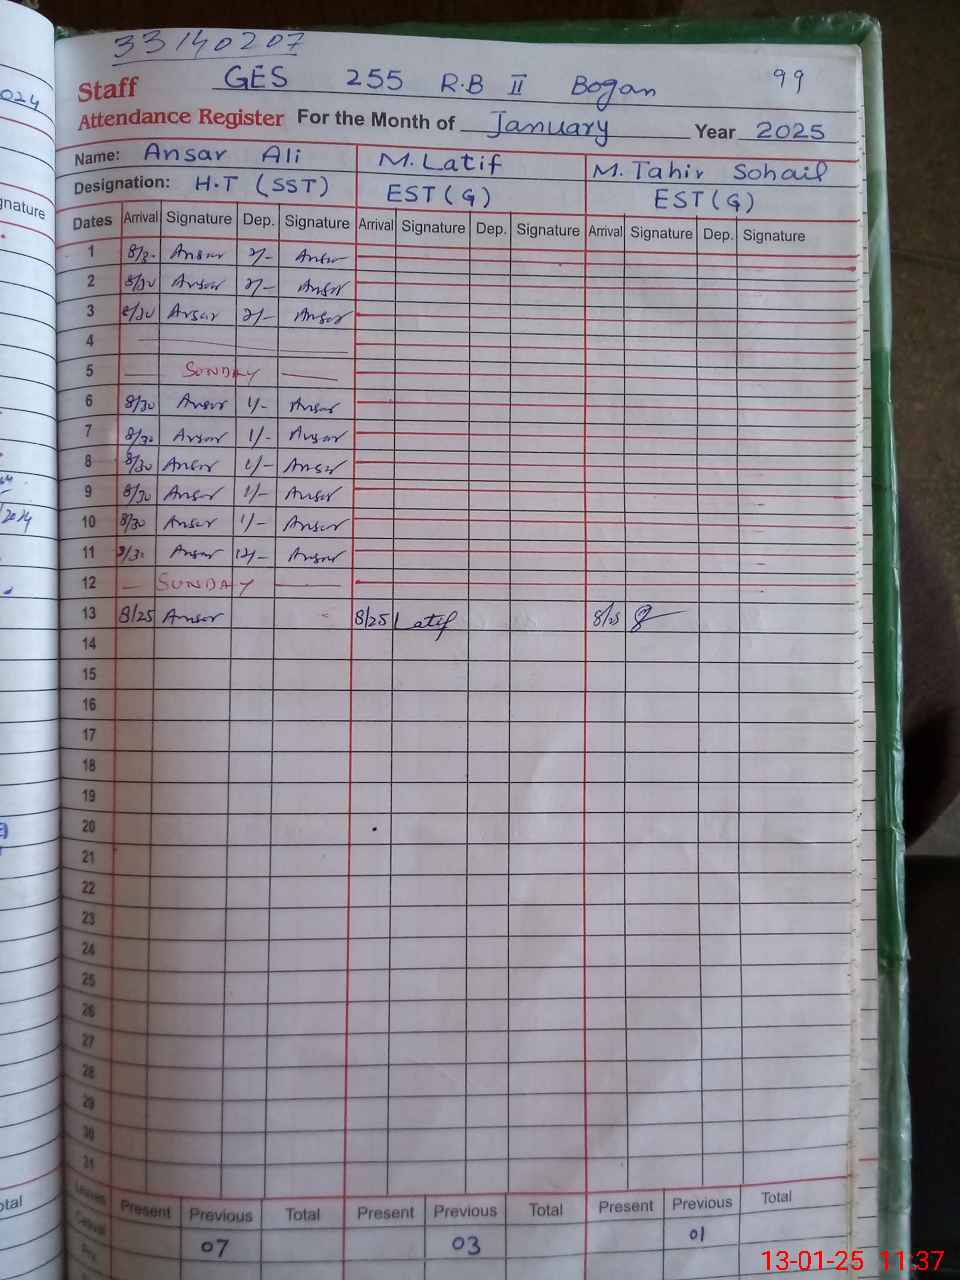 024
gnature
2024
otal
33140207
Staff GES 255 R.B II Bogan 99
Attendance Register For the Month of January Year 2025
Name: Ansar Ali M. Latif M. Tahir Sohail
Designation: H.T (SST) EST (G) EST (G)
Dates Arrival Signature Dep. Signature Arrival Signature Dep. Signature Arrival Signature Dep. Signature
1 8/30 Ansar 2/- Ansar
2 8/30 Ansar 2/- Ansar
3 8/30 Ansar 2/- Ansar
4
5 SUNDAY
6 8/30 Ansar 1/- Ansar
7 8/30 Ansar 1/- Ansar
8 8/30 Ansar 1/- Ansar
9 8/30 Ansar 1/- Ansar
10 8/30 Ansar 1/- Ansar
11 8/30 Ansar 12/- Ansar
12 SUNDAY
13 8/25 Ansar 8/25 Latif 8/25
14
15
16
17
18
19
20
21
22
23
24
25
26
27
28
29
30
31
Leaves Present Previous Total Present Previous Total Present Previous Total
Casual 07 03 01
Prv.
13-01-25 11:37